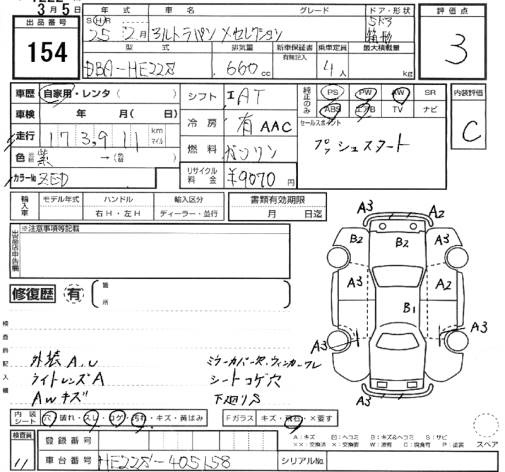 3月5日
出品番号
154
年式 車名 グレード ドア・形状
SHR 25年2月 アルトラパン Xセレクション 5ドア 箱形
型式 排気量 新車保証書 乗車定員 最大積載量
有無記入
DBA-HE22S .660cc 4人 kg
評価点
3
車歴 自家用・レンタ( )
車検 年 月( 日)
走行 173,911 km マイル
色
カラーNo. ZED
シフト IAT
冷房 有 AAC
燃料 ガソリン
リサイクル料金 ¥9070
純正のみ
PS PW AW SR
ABS エアB TV ナビ
セールスポイント
プッシュスタート
内装評価
C
輸入車 モデル年式 ハンドル 輸入区分
右H・左H ディーラー・並行
書類有効期限
月 日迄
※注意事項等記載
出品店申告欄
修復歴 有 箇所
検査員記入欄
外装A.U
ライトレンズA
AWキズ
ミラーカバー左、ウィンカーワレ
シートコゲ穴
下廻りS
A3 A2
B2 B2 A3
A3 B1 A2
A3 A3
内装シート 穴・破れ・スレ・コゲ・汚れ・キズ・黄ばみ Fガラス キズ・飛石・×要す
A:キズ U:ヘコミ B:キズ&ヘコミ S:サビ
スペア
検査員 11
登録番号
車台番号 HE22S-405158 シリアルNo.